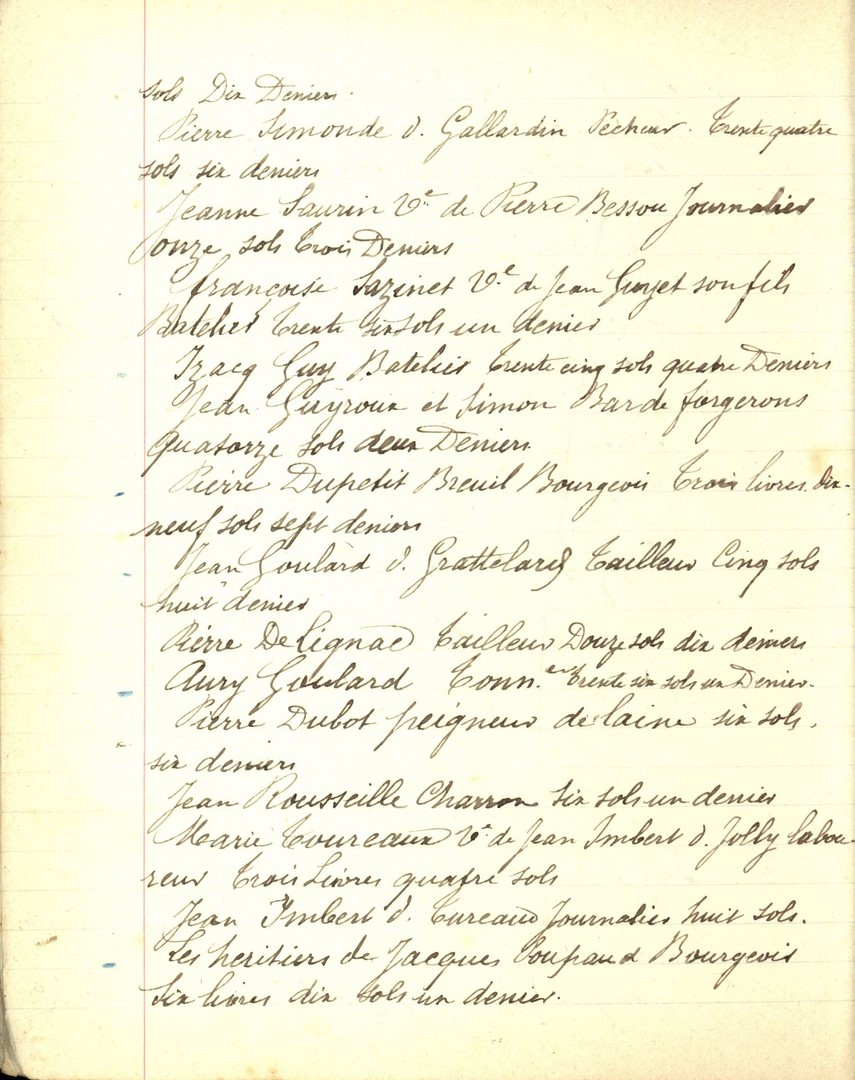 sols Dix Deniers.
Pierre Simonde d. Gallardin Pecheur. Trente quatre
sols six deniers
Jeanne Saurin Ve de Pierre Bessou Journalier
onze sols trois Deniers
françoise Sazinet Ve de Jean Guyet son fils
Batelier trente six sols un denier
Izacq Guy Batelier trente cinq sols quatre Deniers
Jean Guyroux et Simon Barde forgerons
quatorze sols deux Deniers
Pierre Dupetit Breuil Bourgeois Trois livres dix-
neuf sols sept deniers
Jean Goulard d. Grattelard Tailleur Cinq sols
huit denier
Pierre De Lignac tailleur Douze sols dix deniers
Aury Goulard Tonn.er trente six sols un Denier.
Pierre Dubot peigneur de laine six sols.
six deniers
Jean Rousseille Charron Six sols un denier
Marie Toureaux Ve de Jean Imbert d. Jolly labou-
reur Trois Livres quatre sols
Jean Imbert d. Tureaud Journalier huit sols.
Les heritiers de Jacques Poupaud Bourgeois
Six livres dix sols un denier.